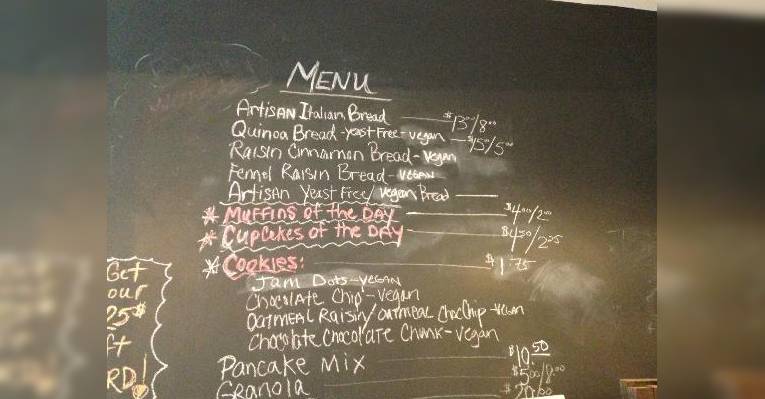 MENU
Artisan Italian Bread $13.00/8.00
Quinoa Bread - yeast free - vegan $15/5.00
Raisin Cinnamon Bread - vegan
Fennel Raisin Bread - vegan
Artisan Yeast Free/ Vegan Bread
* Muffins of the Day $4.00/2.00
* Cupcakes of the Day $4.50/2.25
* Cookies: $1.75
Jam Dots - vegan
Chocolate Chip - vegan
Oatmeal Raisin/ oatmeal Choc Chip - vegan
Chocolate Chocolate Chunk - vegan
Pancake Mix $10.50
Granola $5.00/8.00
$20.00
Get
our
25$
ft
RD!